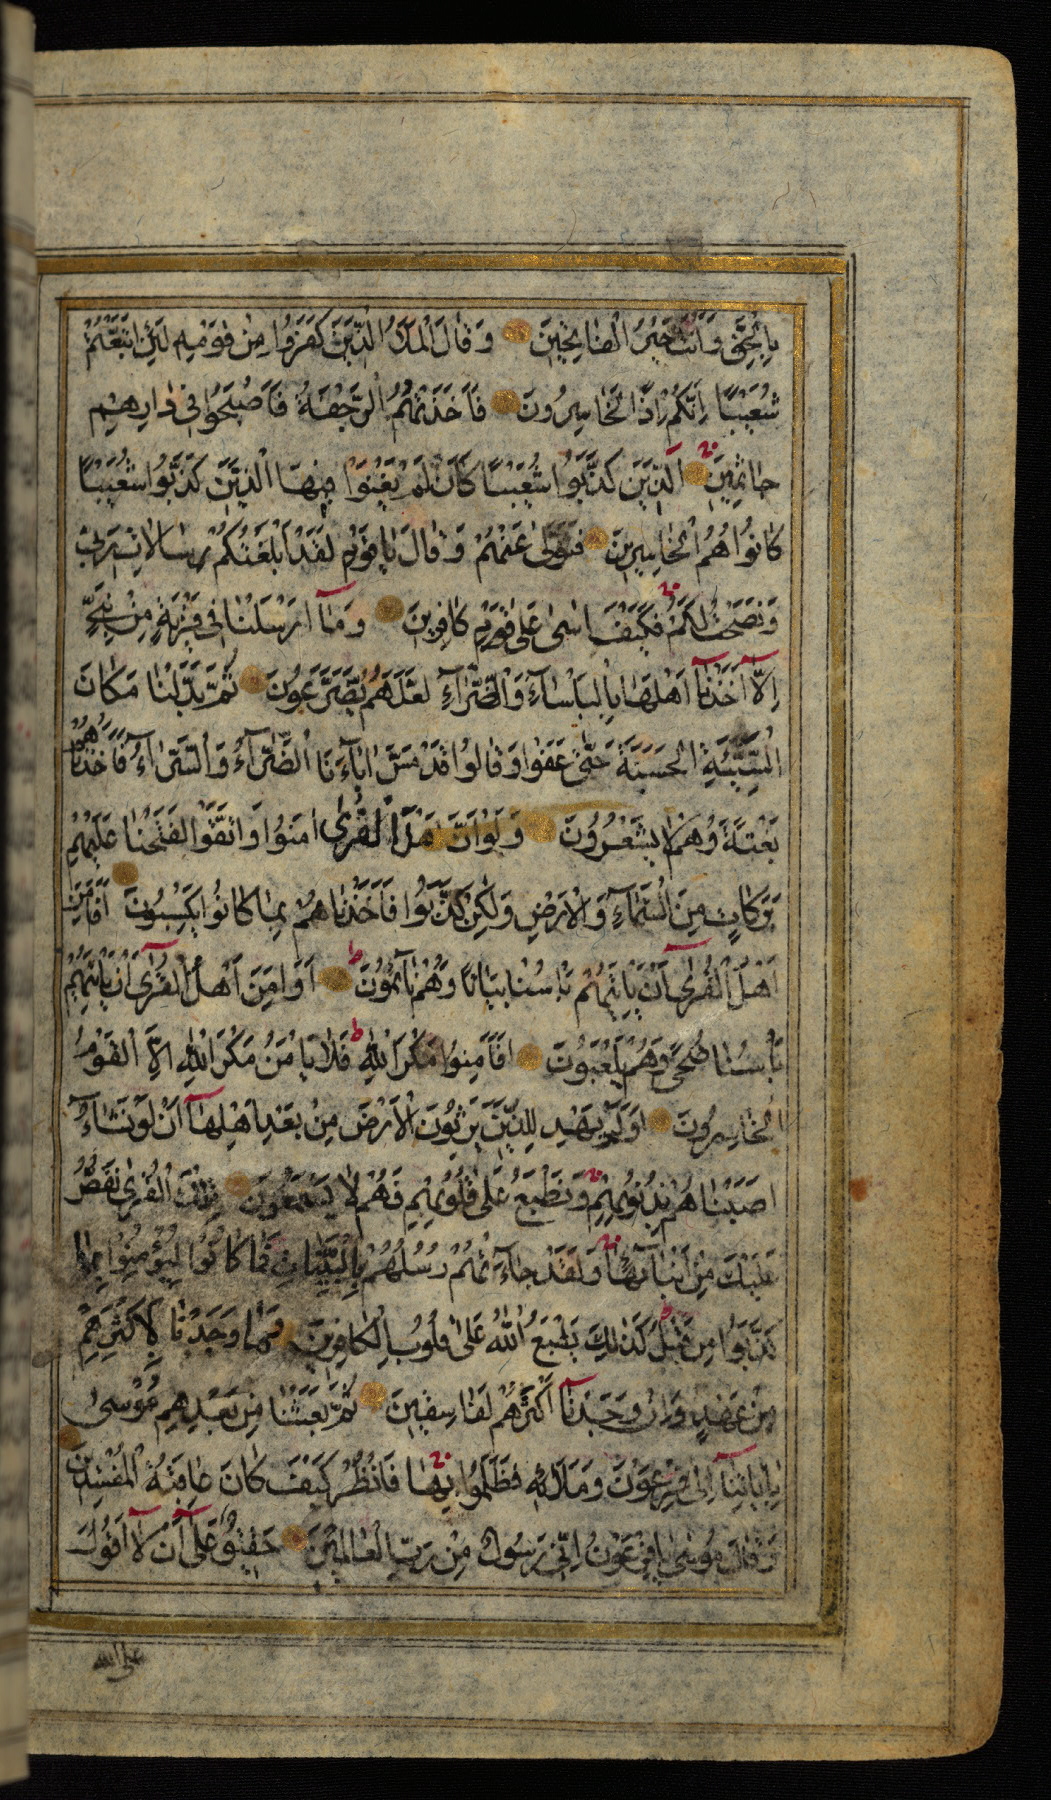 بِالْحَقِّ وَاَنْتَ خَيْرُ الْفَاتِحِينَ وَقَالَ الْمَلَأُ الَّذِينَ كَفَرُوا مِنْ قَوْمِهِ لَئِنِ اتَّبَعْتُمْ
شُعَيْبًا اِنَّكُمْ اِذًا لَخَاسِرُونَ فَاَخَذَتْهُمُ الرَّجْفَةُ فَاَصْبَحُوا فِى دَارِهِمْ
جَاثِمِينَ اَلَّذِينَ كَذَّبُوا شُعَيْبًا كَاَنْ لَمْ يَغْنَوْا فِيهَا اَلَّذِينَ كَذَّبُوا شُعَيْبًا
كَانُوا هُمُ الْخَاسِرِينَ فَتَوَلّٰى عَنْهُمْ وَقَالَ يَاقَوْمِ لَقَدْ اَبْلَغْتُكُمْ رِسَالَاتِ رَبِّى
وَنَصَحْتُ لَكُمْ فَكَيْفَ اٰسٰى عَلٰى قَوْمٍ كَافِرِينَ وَمَٓا اَرْسَلْنَا فِى قَرْيَةٍ مِنْ نَبِىٍّ
اِلَّٓا اَخَذْنَٓا اَهْلَهَا بِالْبَاْسَٓاءِ وَالضَّرَّٓاءِ لَعَلَّهُمْ يَضَّرَّعُونَ ثُمَّ بَدَّلْنَا مَكَانَ
السَّيِّئَةِ الْحَسَنَةَ حَتّٰى عَفَوْا وَقَالُوا قَدْ مَسَّ اٰبَٓاءَنَا الضَّرَّٓاءُ وَالسَّرَّٓاءُ فَاَخَذْنَاهُمْ
بَغْتَةً وَهُمْ لَا يَشْعُرُونَ وَلَوْ اَنَّ اَهْلَ الْقُرٰٓى اٰمَنُوا وَاتَّقَوْا لَفَتَحْنَا عَلَيْهِمْ
بَرَكَاتٍ مِنَ السَّمَٓاءِ وَالْاَرْضِ وَلٰكِنْ كَذَّبُوا فَاَخَذْنَاهُمْ بِمَا كَانُوا يَكْسِبُونَ اَفَاَمِنَ
اَهْلُ الْقُرٰٓى اَنْ يَاْتِيَهُمْ بَاْسُنَا بَيَاتًا وَهُمْ نَٓائِمُونَ اَوَ اَمِنَ اَهْلُ الْقُرٰٓى اَنْ يَاْتِيَهُمْ
بَاْسُنَا ضُحًى وَهُمْ يَلْعَبُونَ اَفَاَمِنُوا مَكْرَ اللّٰهِ فَلَا يَاْمَنُ مَكْرَ اللّٰهِ اِلَّا الْقَوْمُ
الْخَاسِرُونَ اَوَلَمْ يَهْدِ لِلَّذِينَ يَرِثُونَ الْاَرْضَ مِنْ بَعْدِ اَهْلِهَٓا اَنْ لَوْ نَشَٓاءُ
اَصَبْنَاهُمْ بِذُنُوبِهِمْ وَنَطْبَعُ عَلٰى قُلُوبِهِمْ فَهُمْ لَا يَسْمَعُونَ تِلْكَ الْقُرٰى نَقُصُّ
عَلَيْكَ مِنْ اَنْبَٓائِهَا وَلَقَدْ جَٓاءَتْهُمْ رُسُلُهُمْ بِالْبَيِّنَاتِ فَمَا كَانُوا لِيُؤْمِنُوا بِمَا
كَذَّبُوا مِنْ قَبْلُ كَذٰلِكَ يَطْبَعُ اللّٰهُ عَلٰى قُلُوبِ الْكَافِرِينَ وَمَا وَجَدْنَا لِاَكْثَرِهِمْ
مِنْ عَهْدٍ وَاِنْ وَجَدْنَٓا اَكْثَرَهُمْ لَفَاسِقِينَ ثُمَّ بَعَثْنَا مِنْ بَعْدِهِمْ مُوسٰى
بِاٰيَاتِنَٓا اِلٰى فِرْعَوْنَ وَمَلَائِهِ فَظَلَمُوا بِهَا فَانْظُرْ كَيْفَ كَانَ عَاقِبَةُ الْمُفْسِدِينَ
وَقَالَ مُوسٰى يَافِرْعَوْنُ اِنِّى رَسُولٌ مِنْ رَبِّ الْعَالَمِينَ حَقِيقٌ عَلٰٓى اَنْ لَٓا اَقُولَ
على الله